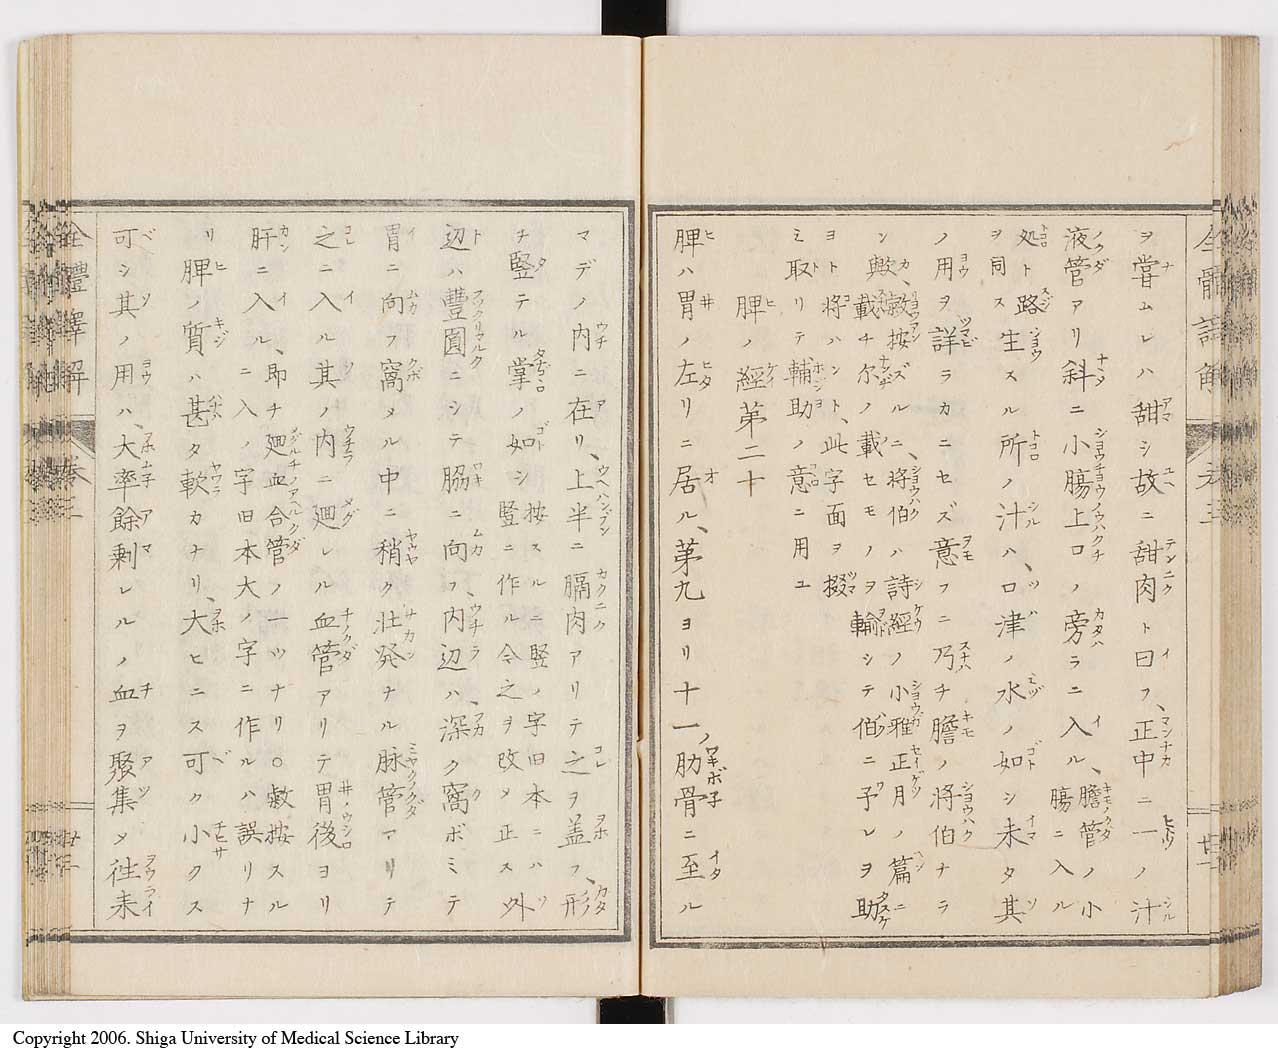 ヲ甞ムレハ甜シ故ニ甜肉ト曰フ、正中ニ一ノ汁
液管アリ斜ニ小膓上口ノ旁ラニ入ル、膽管ノ小膓ニ入ル
処ト路ヲ同ス生スル所ノ汁ハ、口津ノ水ノ如シ未タ其
ノ用ヲ詳ラカニセズ意フニ乃チ膽ノ將伯ナラ
ン歟、敬按ズルニ、將伯ハ詩經ノ小雅正月ノ篇ニ
載チ尔ノ載セモノヲ輸シテ伯ニ予レヲ助
ヨト将ハント、此字面ヲ掇
ミ取リテ輔助ノ意ニ用ユ
脾ノ經第二十
脾ハ胃ノ左リニ居ル、苐九ヨリ十一ノ肋骨ニ至ル
マデノ内ニ在リ、上半ニ膈肉アリテ之ヲ盖フ、形
チ竪テル掌ノ如シ 按スルニ竪ノ字旧本ニハツ
竪ニ作ル今之ヲ改メ正ス 外
辺ハ豐圓ニシテ脇ニ向フ内辺ハ、深ク窩ボミテ
胃ニ向フ窩メル中ニ稍ク壮発ナル脉管アリテ
之ニ入ル其ノ内ニ廻レル血管アリテ胃後ヨリ
肝ニ入ル、即チ廻血合管ノ一ツナリ○敬按スル
ニ入ノ字旧本大ノ字ニ作ルハ誤リナ
リ脾ノ質ハ甚タ軟カナリ、大ヒニス可ク小クス
可シ其ノ用ハ、大率餘剰レルノ血ヲ聚集メ徃来
全體譯解 卷三
廿三
Copyright 2006. Shiga University of Medical Science Library